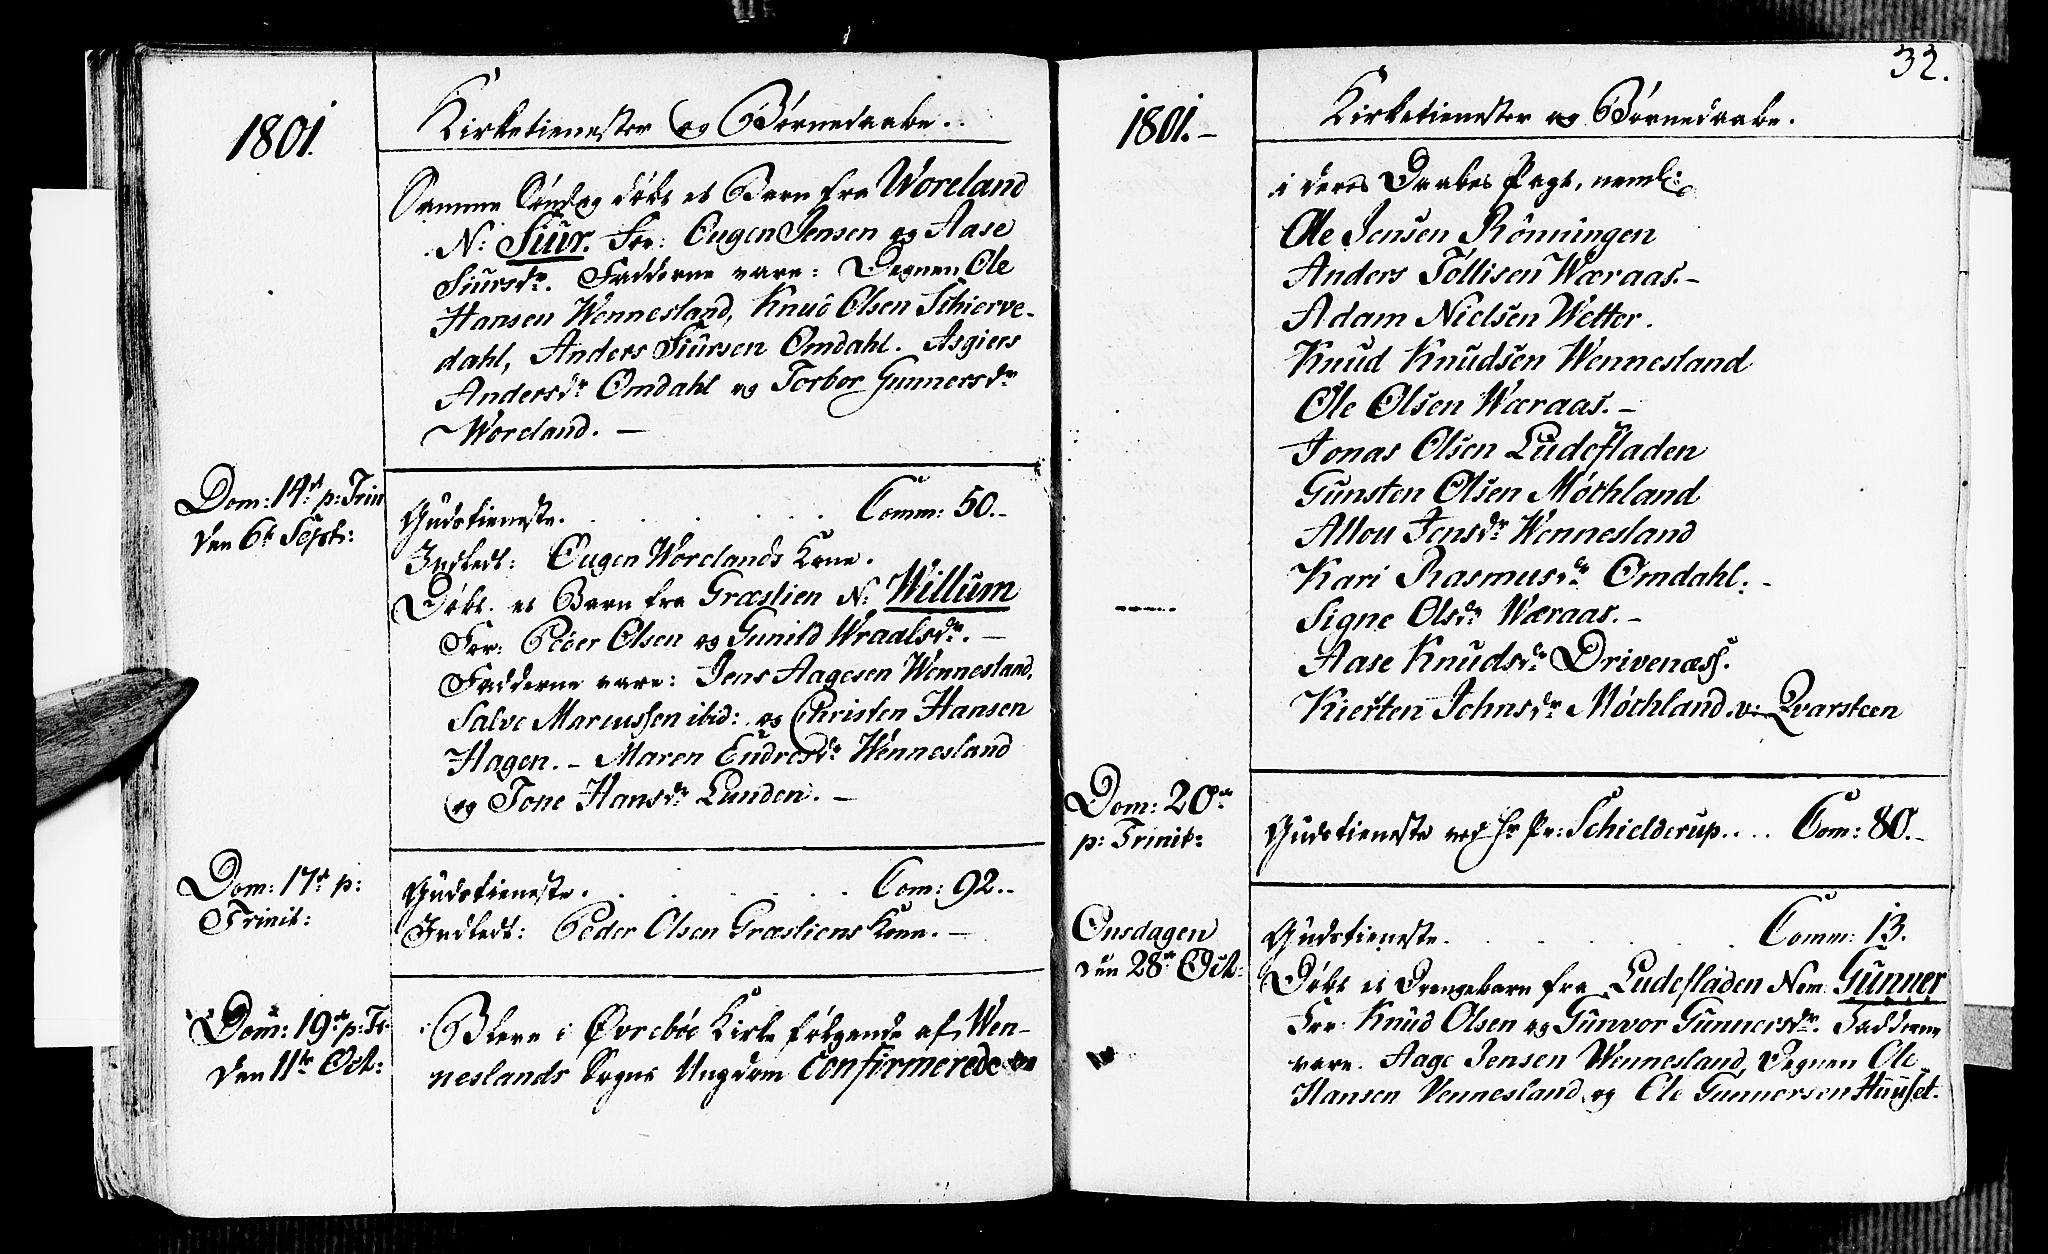 1801.
Kirketienester og Børnedaabe..
Samme Søndag døbt et Barn fra Woreland
N: Siur. For: Ougen Jensen og Aase
Siursdr. Fadderne vare: Degnen Ole
Hansen Wennesland, Knud Olsen Schierve-
dahl, Anders Siursen Omdahl. Asgiers
Andersdr Omdahl og Torbor Gunnersdr
Woreland. —
Dom: 14de p: Trin
den 6te Septr:
Gudstieneste. . . . . . . Comm: 50.-
Indledt: Ougen Worelands Kone.
Døbt. et Barn fra Græslien N: Willum
For: Peder Olsen og Gunild Wraalsdr. —
Fadderne vare: Jens Aagesen Wennesland,
Salve Marcussen ibid: og Christen Hansen
Hagen. - Maren Endresdr Wennesland
og Tone Hansdr Lunden. —
Dom: 17de p:
Trinit:
Gudstieneste. . . . . . . Com: 92..
Indledt: Peder Olsen Græsliens Kone. —
Dom: 19de p: Tr.
den 11te Oct:
Bleve i Øvrebøe Kirke følgende af Wen-
neslands Sogns Ungdom Confirmerede
32.
1801.-
Kirketienester og Børnedaabe.
i deres Daabes Pagt, neml:
Ole Jensen Rönningen
Anders Tollisen Wæraas.-
Adam Nielsen Wetter.
Knud Knudsen Wennesland
Ole Olsen Wæraas.-
Jonas Olsen Ludefladen
Gunsten Olsen Møthland
Allou Jensdr Wennesland
Kari Rasmusdr Omdahl.-
Signe Olsdr Wæraas.-
Aase Knudsdr Drivenæss.
Kiersten Johnsdr Møthland v: Qvarsteen
Dom: 20de
p: Trinit:
Gudstieneste ved Hr Pr: Schielderup. . . . Com: 80.-
Onsdagen
den 28de Oct:
Gudstieneste. . . . . . . Comm: 13.
Døbt et Drengebarn fra Ludefladen Nom: Gunner
For: Knud Olsen og Gunvor Gunnersdr. Fadderne
vare. Aage Jensen Wennesland, Degnen Ole
Hansen Vennesland og Ole Gunnersen Huuset.